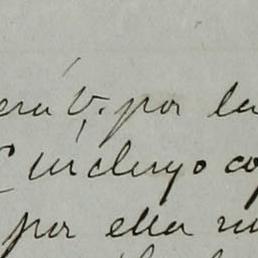 V. por la
incluyo co
por ella